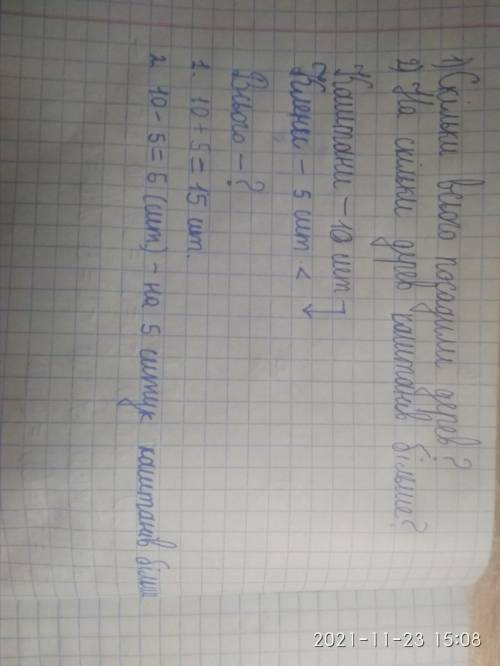 1) Скільки всього посадили дерев?
2) На скільки дерев каштанів більше?
Каштани – 10 шт
Клени – 5 шт <
Всього – ?
1. 10 + 5 = 15 шт.
2. 10 - 5 = 5 (шт) - на 5 штук каштанів більше
2021-11-23 15:08